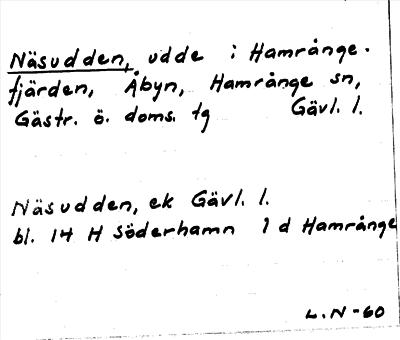 Näsudden, udde i Hamrånge-
fjärden, Åbyn, Hamrånge sn,
Gästr. ö. doms. tg Gävl. l.
Näsudden, ek Gävl. l.
bl. 14 H Söderhamn 1 d Hamrånge
L.N-60